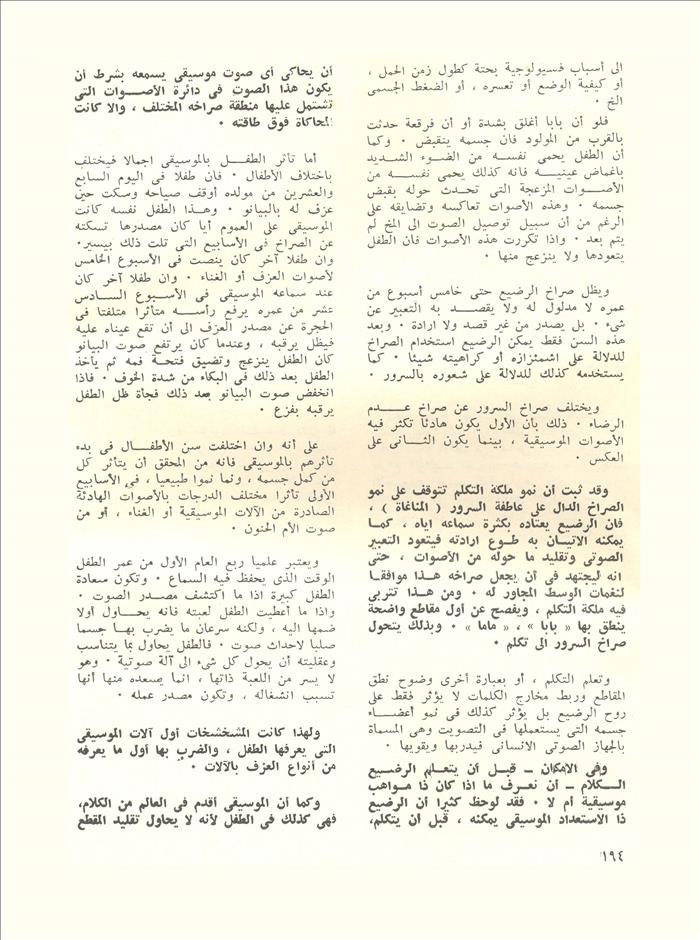 الى أسباب فسيولوجية بحتة كطول زمن الحمل ،
أو كيفية الوضع أو تعسره ، أو الضغط الجسمى
الخ ٠
فلو أن بابا أغلق بشدة أو أن فرقعة حدثت
بالقرب من المولود فان جسمه ينقبض ٠ وكما
أن الطفل يحمى نفسه من الضوء الشديد
باغماض عينيه فانه كذلك يحمى نفسه من
الأصوات المزعجة التى تحدث حوله بقبض
جسمه ٠ وهذه الأصوات تعاكسه وتضايقه على
الرغم من أن سبيل توصيل الصوت الى المخ لم
يتم بعد ٠ واذا تكررت هذه الأصوات فان الطفل
يتعودها ولا ينزعج منها ٠
ويظل صراخ الرضيع حتى خامس أسبوع من
عمره لا مدلول له ولا يقصد به التعبير عن
شىء ٠ بل يصدر من غير قصد ولا ارادة ٠ وبعد
هذه السن فقط يمكن الرضيع استخدام الصراخ
للدلالة على اشمئزازه أو كراهيته شيئا ٠ كما
يستخدمه كذلك للدلالة على شعوره بالسرور ٠
ويختلف صراخ السرور عن صراخ عدم
الرضاء ٠ ذلك بأن الأول يكون هادئا تكثر فيه
الأصوات الموسيقية ، بينما يكون الثانى على
العكس ٠
وقد ثبت أن نمو ملكة التكلم تتوقف على نمو
الصراخ الدال على عاطفة السرور ( المناغاة ) ،
فان الرضيع يعتاده بكثرة سماعه اياه ، كما
يمكنه الاتيان به طوع ارادته فيتعود التعبير
الصوتى وتقليد ما حوله من الأصوات ، حتى
انه ليجتهد فى أن يجعل صراخه هذا موافقا
لنغمات الوسط المجاور له ٠ ومن هذا تتربى
فيه ملكة التكلم ، ويفصح عن أول مقاطع واضحة
ينطق بها « بابا » ، « ماما » ٠ وبذلك يتحول
صراخ السرور الى تكلم ٠
وتعلم التكلم ، أو بعبارة أخرى وضوح نطق
المقاطع وربط مخارج الكلمات لا يؤثر فقط على
روح الرضيع بل يؤثر كذلك فى نمو أعضاء
جسمه التى يستعملها فى التصويت وهى المسماة
بالجهاز الصوتى الانسانى فيدربها ويقويها ٠
وفى الامكان ـ قبل أن يتعلم الرضيع
الكلام ـ أن نعرف ما اذا كان ذا مواهب
موسيقية أم لا ٠ فقد لوحظ كثيرا أن الرضيع
ذا الاستعداد الموسيقى يمكنه ، قبل أن يتكلم،
أن يحاكى أى صوت موسيقى يسمعه بشرط أن
يكون هذا الصوت فى دائرة الأصوات التى
تشتمل عليها منطقة صراخه المختلف ، والا كانت
المحاكاة فوق طاقته ٠
أما تأثر الطفل بالموسيقى اجمالا فيختلف
باختلاف الأطفال ٠ فان طفلا فى اليوم السابع
والعشرين من مولده أوقف صياحه وسكت حين
عزف له بالبيانو ٠ وهذا الطفل نفسه كانت
الموسيقى على العموم أيا كان مصدرها تسكته
عن الصراخ فى الأسابيع التى تلت ذلك بيسير٠
وان طفلا آخر كان ينصت فى الأسبوع الخامس
لأصوات العزف أو الغناء ٠ وان طفلا آخر كان
عند سماعه الموسيقى فى الأسبوع السادس
عشر من عمره يرفع رأسه متأثرا متلفتا فى
الحجرة عن مصدر العزف الى أن تقع عيناه عليه
فيظل يرقبه ، وعندما كان يرتفع صوت البيانو
كان الطفل ينزعج وتضيق فتحة فمه ثم يأخذ
الطفل بعد ذلك فى البكاء من شدة الخوف ٠ فاذا
انخفض صوت البيانو بعد ذلك فجأة ظل الطفل
يرقبه بفزع ٠
على أنه وان اختلفت سن الأطفال فى بدء
تأثرهم بالموسيقى فانه من المحقق أن يتأثر كل
من كمل جسمه ، ونما نموا طبيعيا ، فى الأسابيع
الأولى تأثرا مختلف الدرجات بالأصوات الهادئة
الصادرة من الآلات الموسيقية أو الغناء ، أو من
صوت الأم الحنون ٠
ويعتبر علميا ربع العام الأول من عمر الطفل
الوقت الذى يحفظ فيه السماع ٠ وتكون سعادة
الطفل كبيرة اذا ما اكتشف مصدر الصوت ٠
واذا ما أعطيت الطفل لعبته فانه يحاول أولا
ضمها اليه ، ولكنه سرعان ما يضرب بها جسما
صلبا لاحداث صوت ٠ فالطفل يحاول بما يتناسب
وعقليته أن يحول كل شىء الى آلة صوتية ٠ وهو
لا يسر من اللعبة ذاتها ، انما يسعده منها أنها
تسبب انشغاله ، وتكون مصدر عمله ٠
ولهذا كانت المشخشخات أول آلات الموسيقى
التى يعرفها الطفل ، والضرب بها أول ما يعرفه
من أنواع العزف بالآلات ٠
وكما أن الموسيقى أقدم فى العالم من الكلام،
فهى كذلك فى الطفل لأنه لا يحاول تقليد المقطع
١٩٤